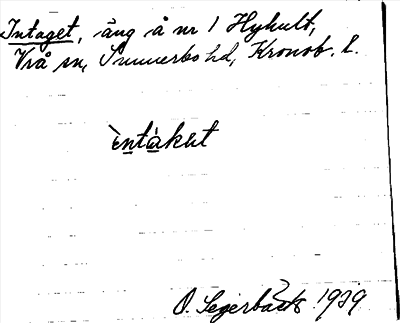 Intaget, äng å nr 1 Hykult,
Vrå sn, Sunnerbo hd, Kronob. l.
i̇̀ntàkət
O. Segerbäck 1939